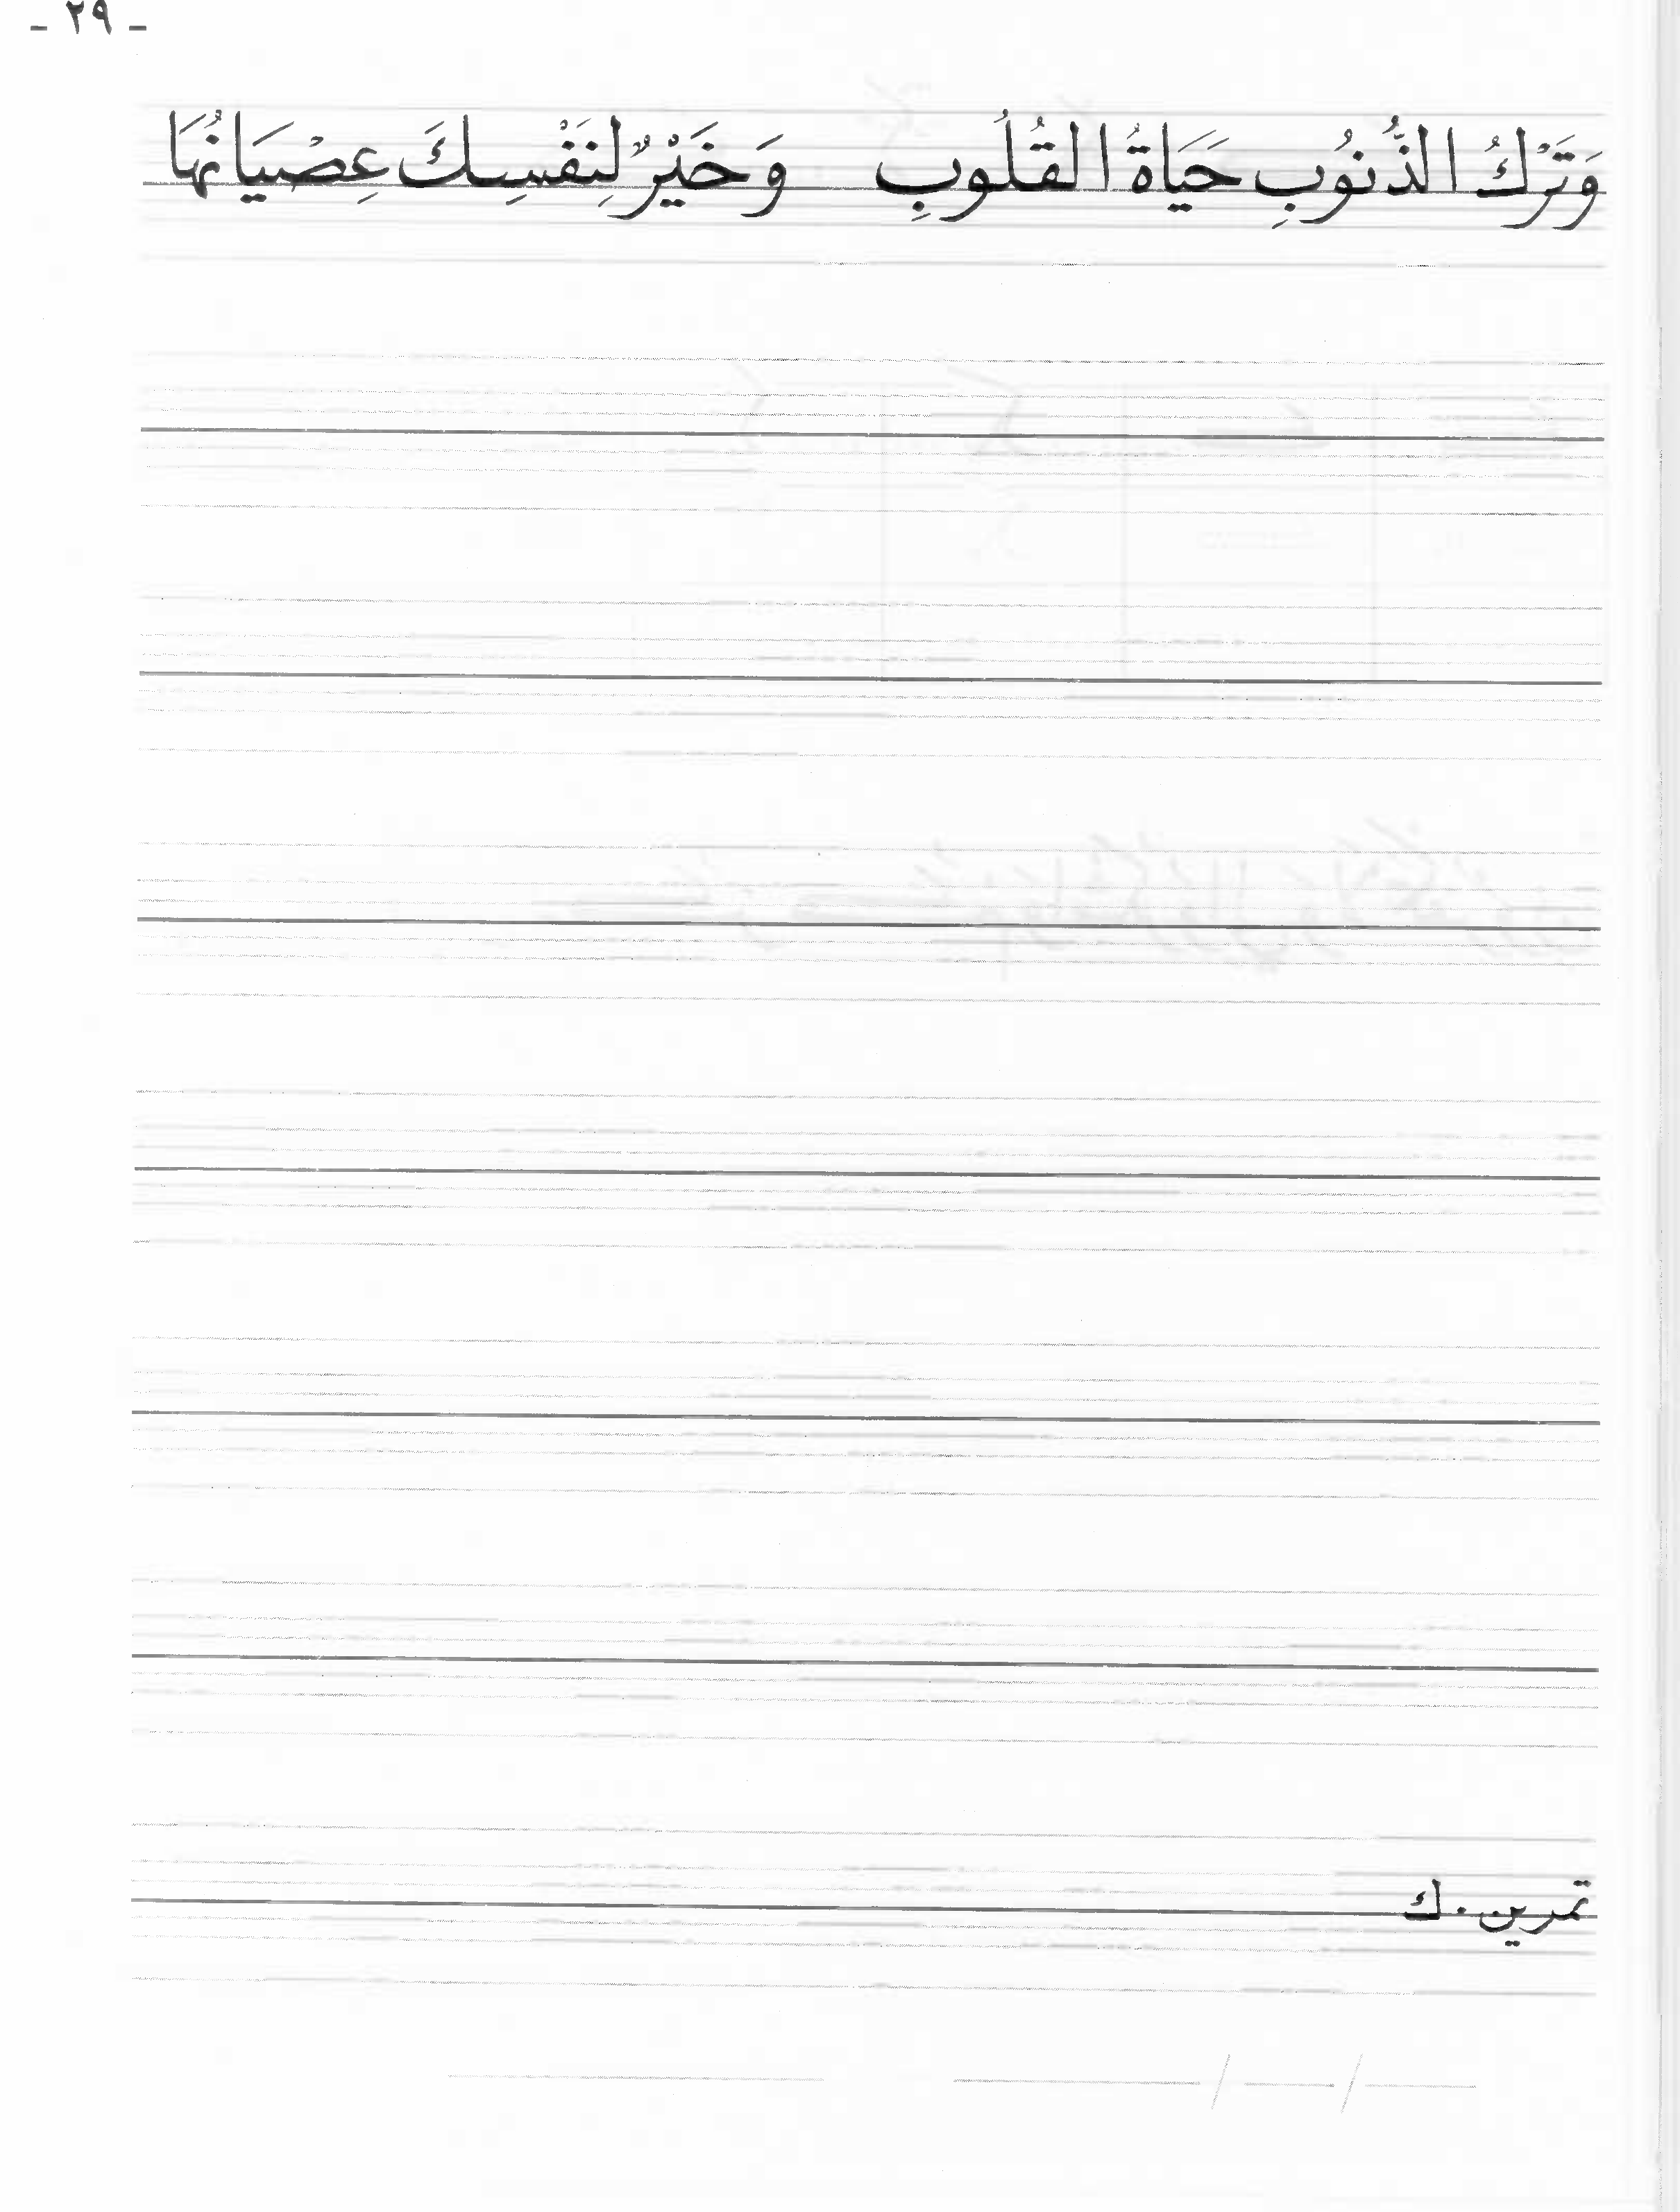 - ٢٩ -
وَتَرْكُ الذُّنُوبِ حَيَاةُ القُلُوبِ وَخَيْرٌ لِنَفْسِكَ عِصْيَانُهَا
تمرين . ك